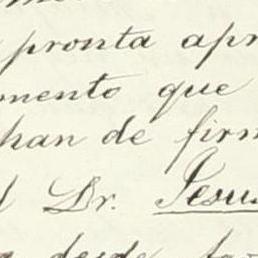 pronta apr
omento que
han de firm
l Dr. Jesus
desde